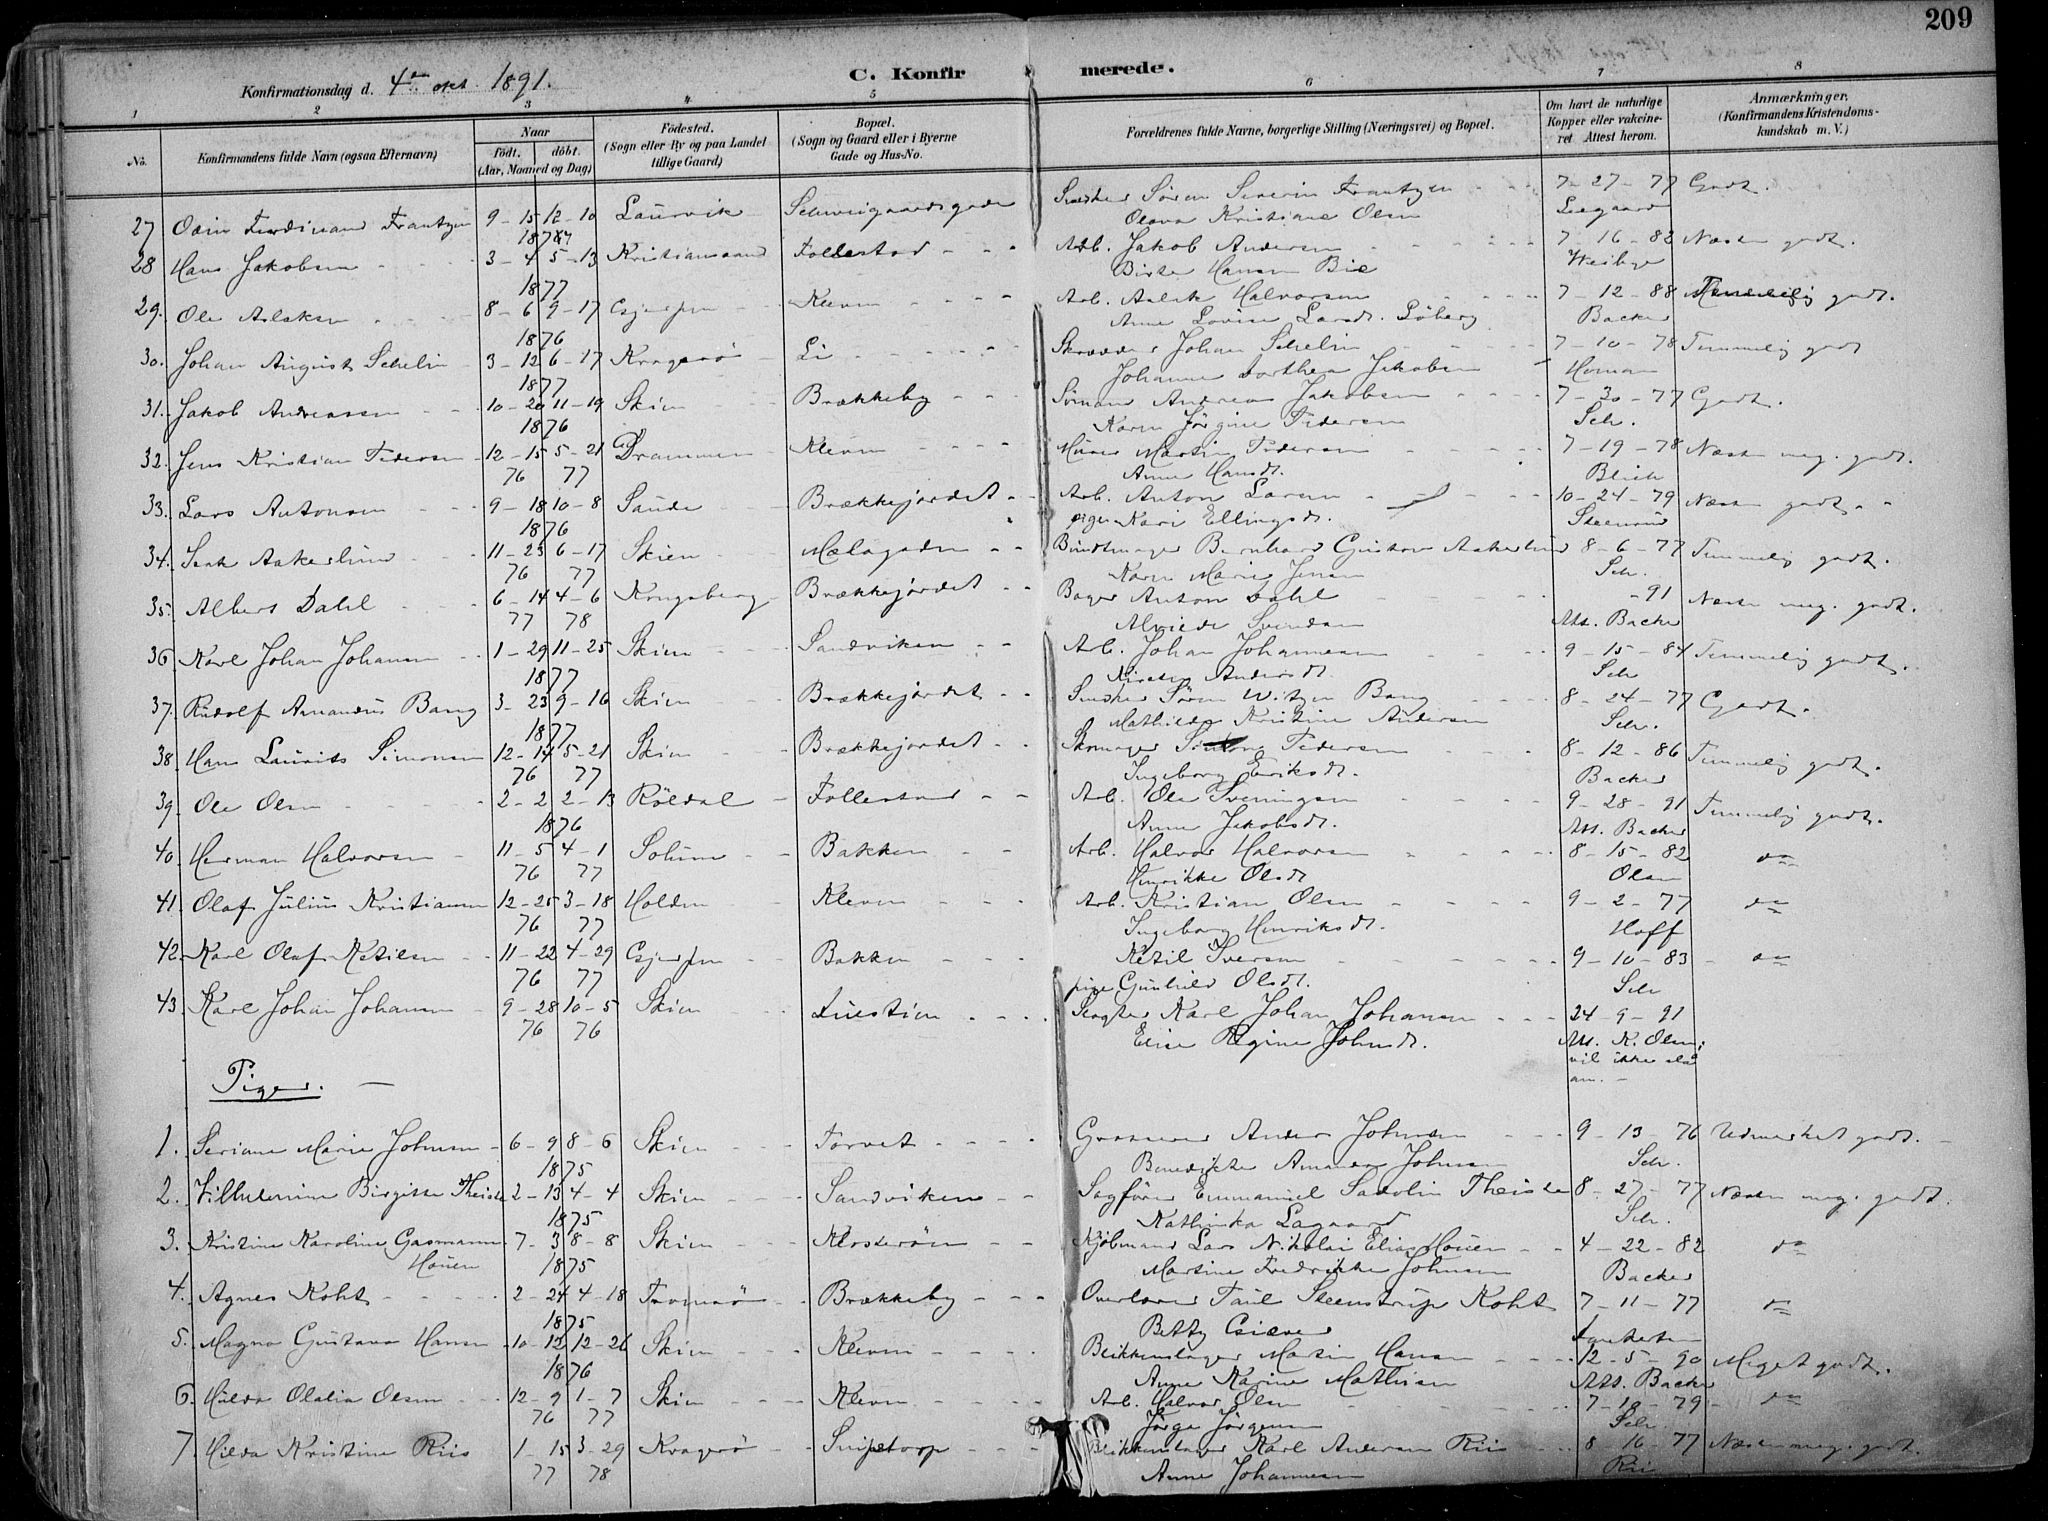 209
Konfirmationsdag d. 4de okt 1891.
C. Konfirmerede.
1 2 3 4 5 6 7 8
No.
Konfirmandens fulde Navn (ogsaa Efternavn)
Naar
født. døbt.
(Aar, Maaned og Dag)
Fødested.
(Sogn eller By og paa Landet
tillige Gaard)
Bopæl.
(Sogn og Gaard eller i Byerne
Gade og Hus-No.
Forældrenes fulde Navne, borgerlige Stilling (Næringsvei) og Bopæl.
Om havt de naturlige
Kopper eller vakcine-
ret Attest herom.
Anmærkninger.
(Konfirmandens Kristendoms-
kundskab m. V.)
27 Odin Ferdinand Frantzen 9-15 12-10 Laurvik Schweigaardsgade Snedker Søren Severin Frantzen 7-27-77 Godt.
Olava Kristiane Olsen
28 Hans Jakobsen 3-4 5-13 Kristianssand Follestad Arb. Jakob Andersen 7-16-82 Næsten godt.
1877 Birte Hansen Bie
29. Ole Aslaksen 8-6 9-17 Gjerpen Kleven Arb. Aslak Halvorsen 7-12-88 godt.
1876 Anne Lovise Larsdt. Backer
30. Johan August Schelin 3-12 6-17 Kragerø Li Skrædder Johan Schelin 7-10-78 Temmelig godt
1877 Johanne Dorthea Jakobsen Homan
31. Jakob Andreassen 10-20 11-19 Skien Brækkeby Sømand Andreas Jakobsen 7-30-77 Godt.
1876 Karen Jørgine Pedersen Sch.
32. Jens Kristian Pedersen 12-15 5-21 Drammen Kleven Murer Martin Pedersen 7-19-78 Næsten meg. godt.
76 77 Anne Hansdt. Blich
33. Lars Antonsen 9-18 10-8 Saude Brækkejordet Arb. Anton Larsen 10-24-79 Næsten godt.
1876 pige Kari Ellingsdt.
34. Aakerlund 11-23 6-17 Skien Mælagaden Bundtmager Bernhard Gustav Aakerlund 8-6-77 Temmelig godt.
76 77 Karen Marie Jensen Sch.
35. Albert Dahl 6-14 4-6 Kongsberg Brækkejordet Bager Anton Dahl -91 Næsten meg. godt.
77 78 Svendsen Att. Backer
36 Karl Johan Johansen 1-29 11-25 Skien Sandviken Arb. Johan Johannesen 9-15-84 Temmelig godt.
1877 Kirsten Andersdt. Sch
37. Rudolf Amandus Bang 3-23 9-16 Skien Brækkejordet Snedker Søren Bang 8-24-77 Godt.
1877 Mathilde Kristine Andersen Sch.
38 Hans Laurits Simonsen 12-14 5-21 Skien Brækkejordet Skomager Pedersen 8-12-86 Temmelig godt.
76 77 Ingeborg Eriksdt. Backer
39. Ole Olsen 2-2 2-13 Røldal Follestad Arb. Ole Sveningsen 9-28-91 Temmelig godt.
1876 Anne Jakobsdt. Att. Backer
40. Herman Halvorsen 11-5 4-1 Solum Bakken Arb. Halvor Halvorsen 8-15-82 do
76 77 Henrikke Olsdt Olsen
41. Olaf Julius Kristiansen 12-25 3-18 Holden Kleven Arb. Kristian Olsen 9-2-77 do
76 77 Ingeborg Henriksdt. Hoff
42. Karl Olaf Ketilsen 11-22 4-29 Gjerpen Bakken Ketil Iversen 9-10-83 do
76 77 pige Gunhild Olsdt. Sch
43. Karl Johan Johansen 9-28 10-5 Skien Lustien Slagter Karl Johan Johansen 24-9-91
76 76 Elise Regine Johnsdt. Att. K. Olsen;
vil ikke slå
an.
Piger.
1. Seriane Marie Johnsen 6-9 8-6 Skien Torvet Grosserer Anders Johnsen 9-13-76 Udmærket godt.
1875 Benedikte Amanda Johnsen Sch.
2. Vilhelmine Birgitte Theiste 2-13 4-4 Skien Sandviken Sagfører Emmanuel Sadolin Theiste 8-27-77 Næsten meg. godt.
1875 Kathinka Lagaard Sch.
3. Kristine Karoline Gasmann 7-3 8-8 Skien Klosterøen Kjøbmand Lars Nikolai Elias Houen 4-22-82 do
Houen 1875 Martine Fredrikke Johnsen Backer
4. Agnes Koht 2-24 4-18 Tromsø Brækkeby Overlærer Paul Steenstrup Koht 7-11-77 do
1875 Betty Giæver
5. Magna Gustava Hansen 10-12 12-26 Skien Kleven Blikkenslager Martin Hansen 12-5-90 Meget godt.
1876 Anne Karine Mathisen Att. Backer
6. Hilda Olalia Olsen 12-9 1-7 Skien Kleven Arb. Halvor Olsen 7-10-79 do
76 77 Jørge Jørgensen Sch.
7. Hilda Kristine Riis 1-15 3-29 Kragerø Snipetorp Blikkenslager Karl Andersen Riis 8-16-77 Næsten meg. godt.
77 78 Anne Johannesen